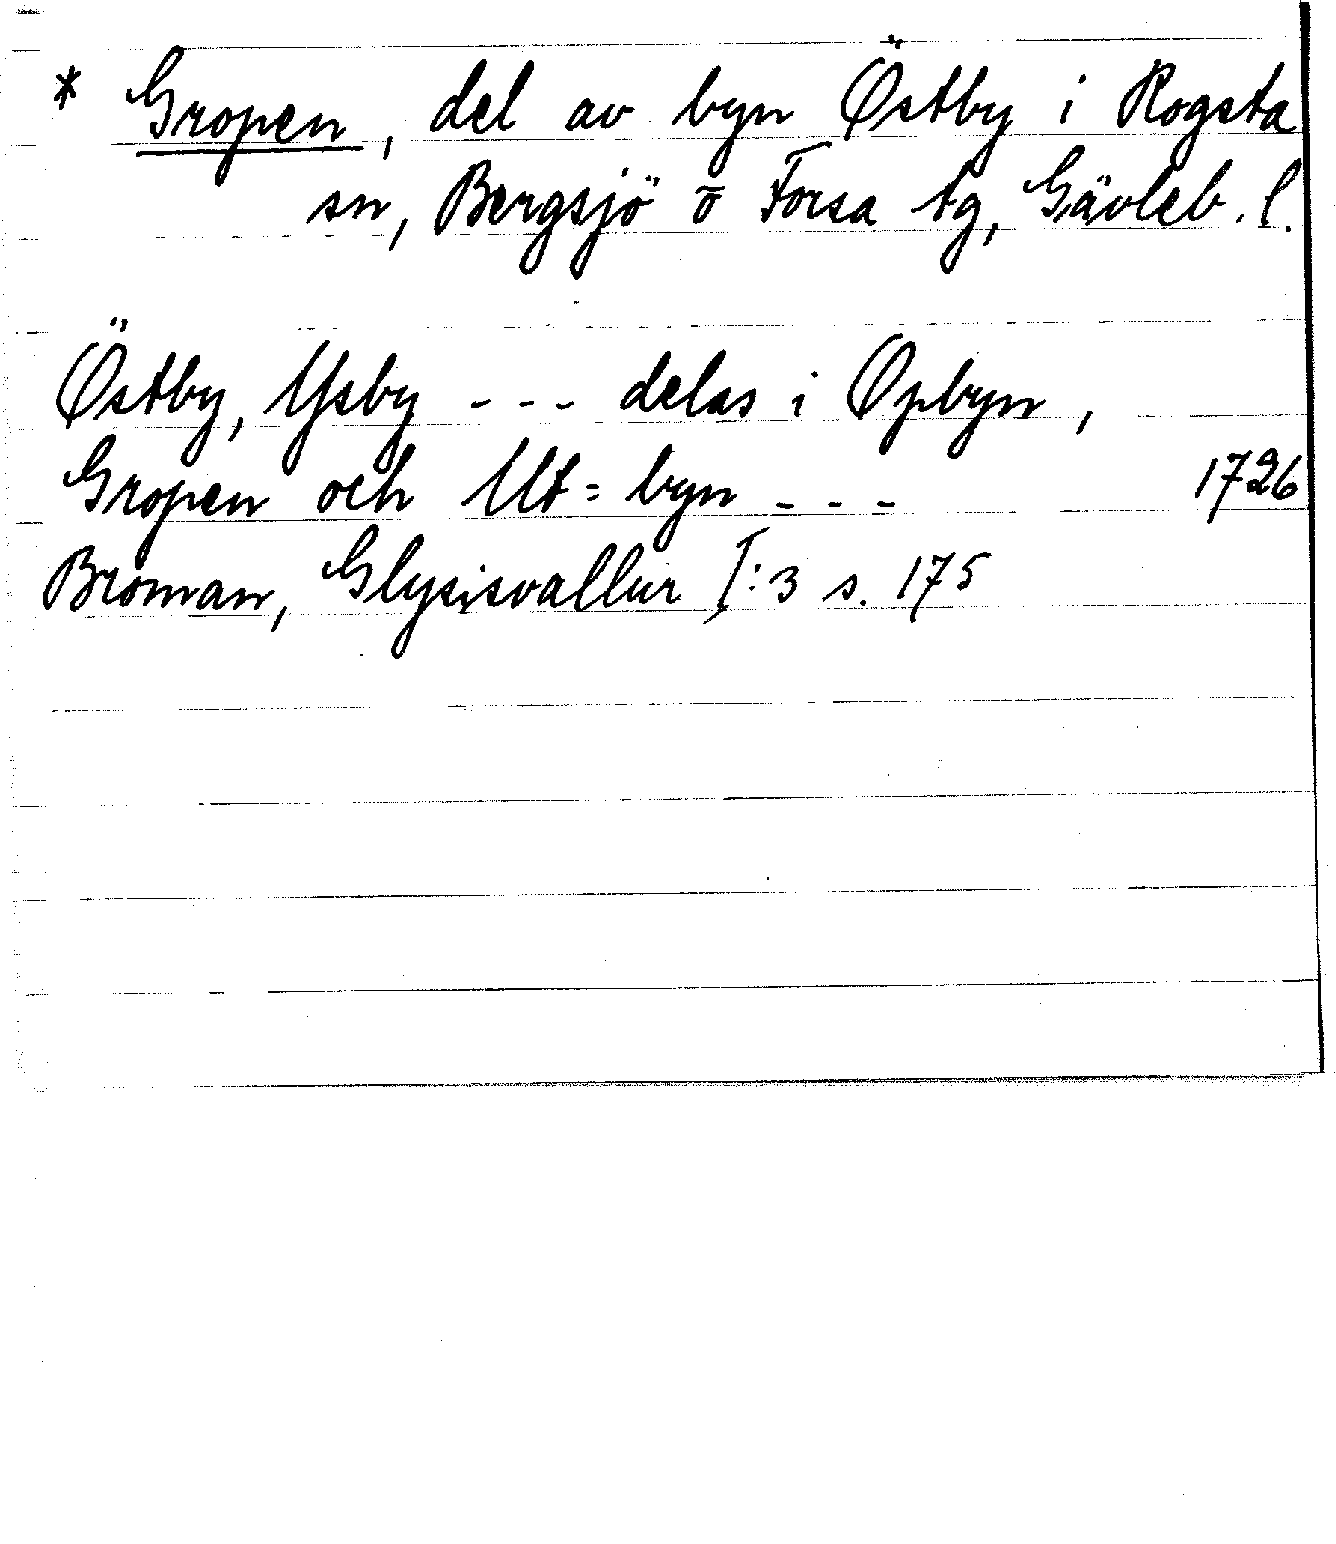 * Gropen, del av byn Östby i Rogsta
sn, Bergsjö o Forsa tg, Gävleb. l.
Östby, Ysby - - - delas i Opbyn,
Gropen och Ut=byn - - - 1726
Broman, Glysisvallur I:3 s. 175